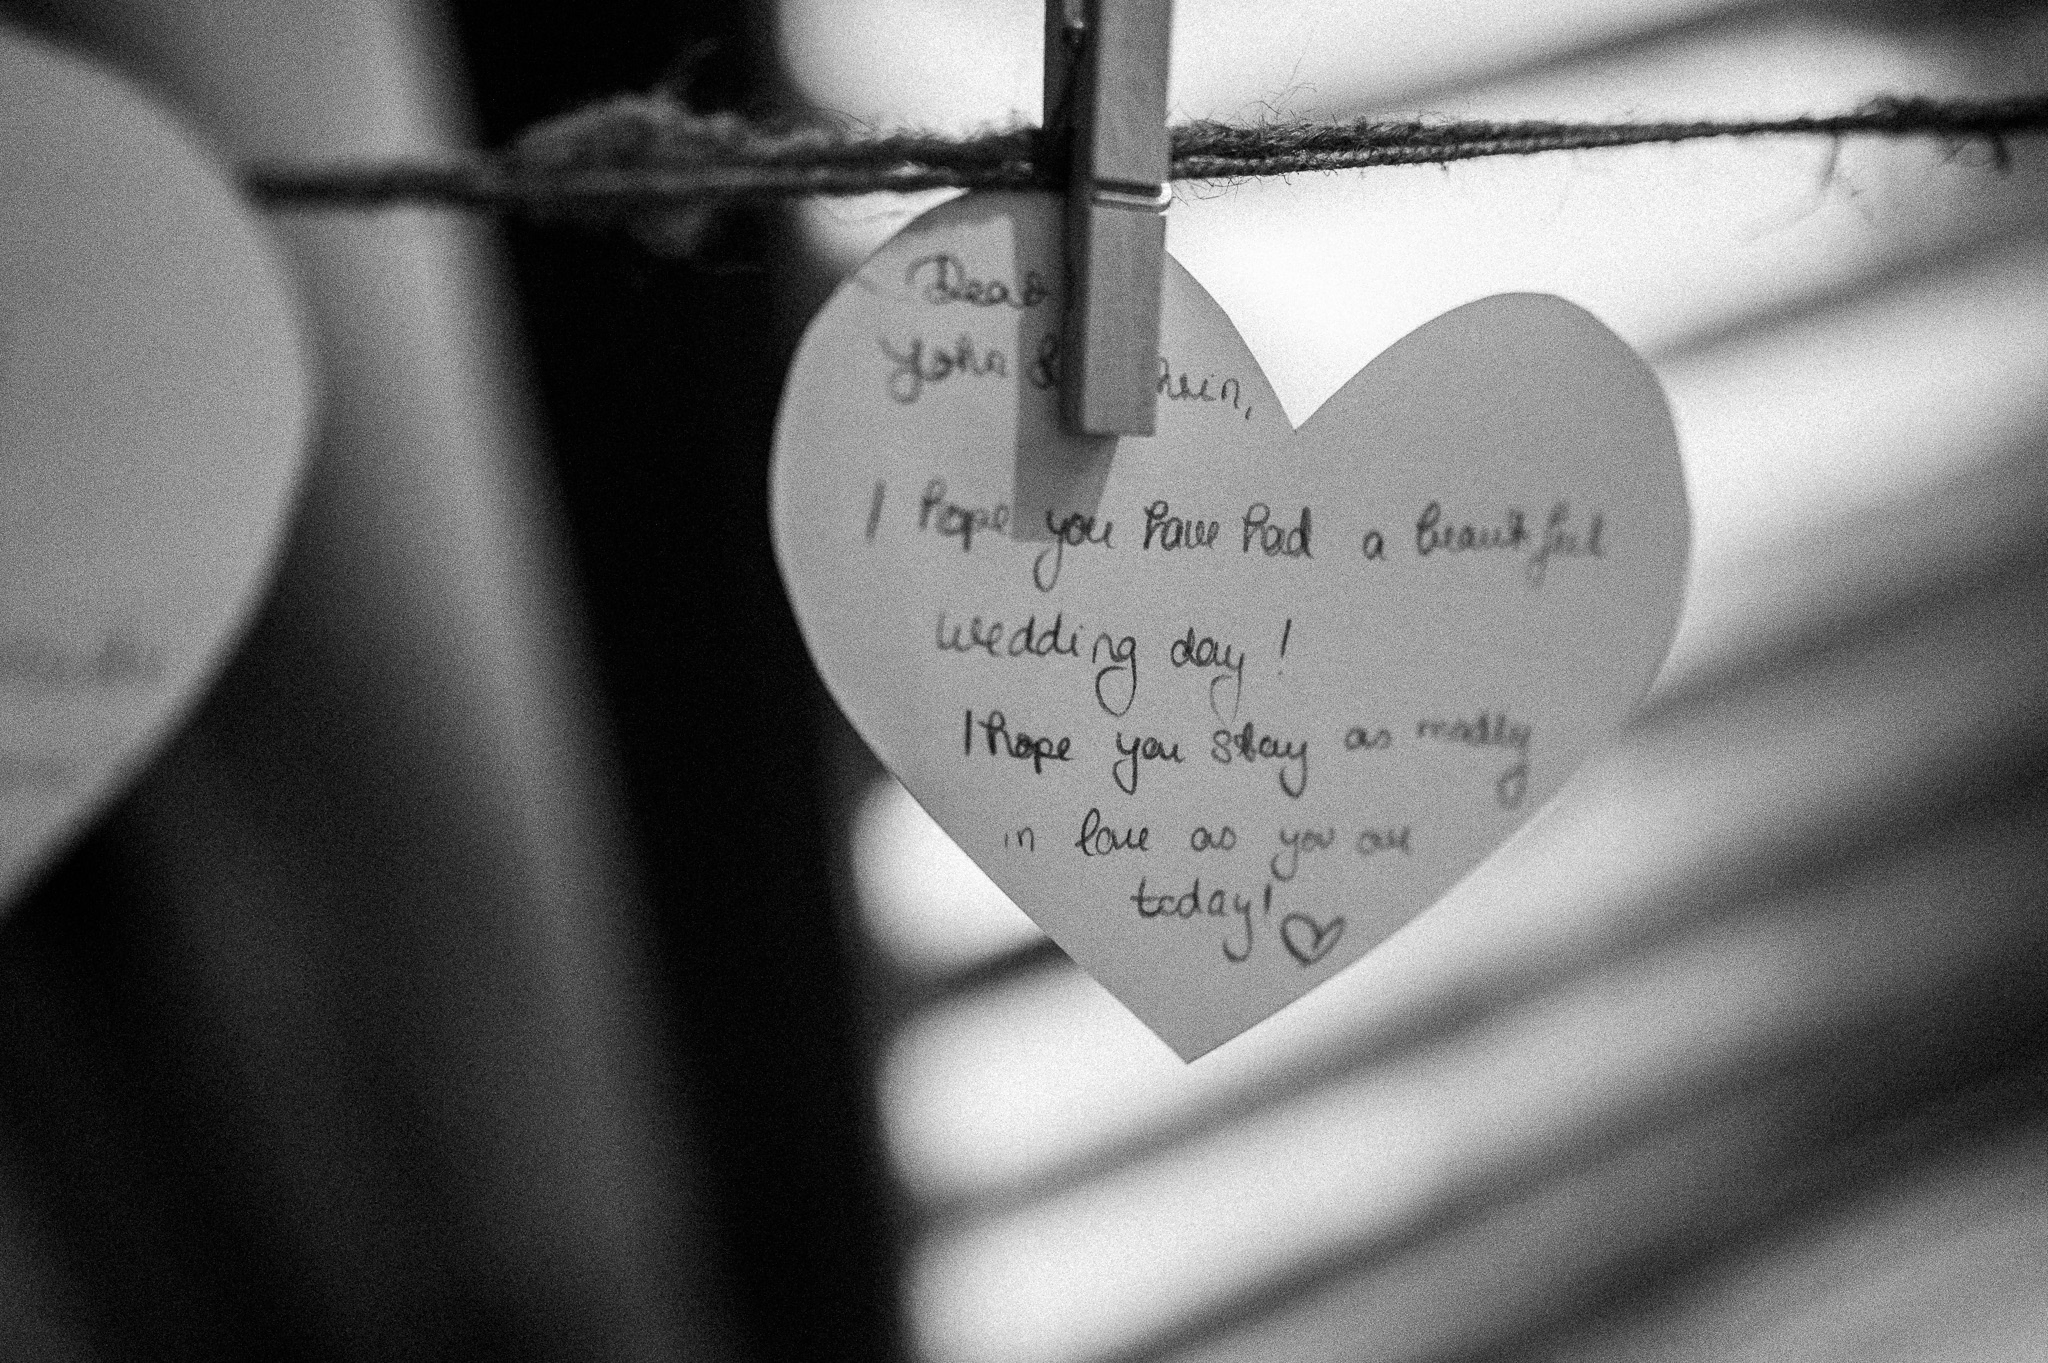 Dear
John &
I hope you have had a beautiful
wedding day!
I hope you stay as madly
in love as you are
today! ♡